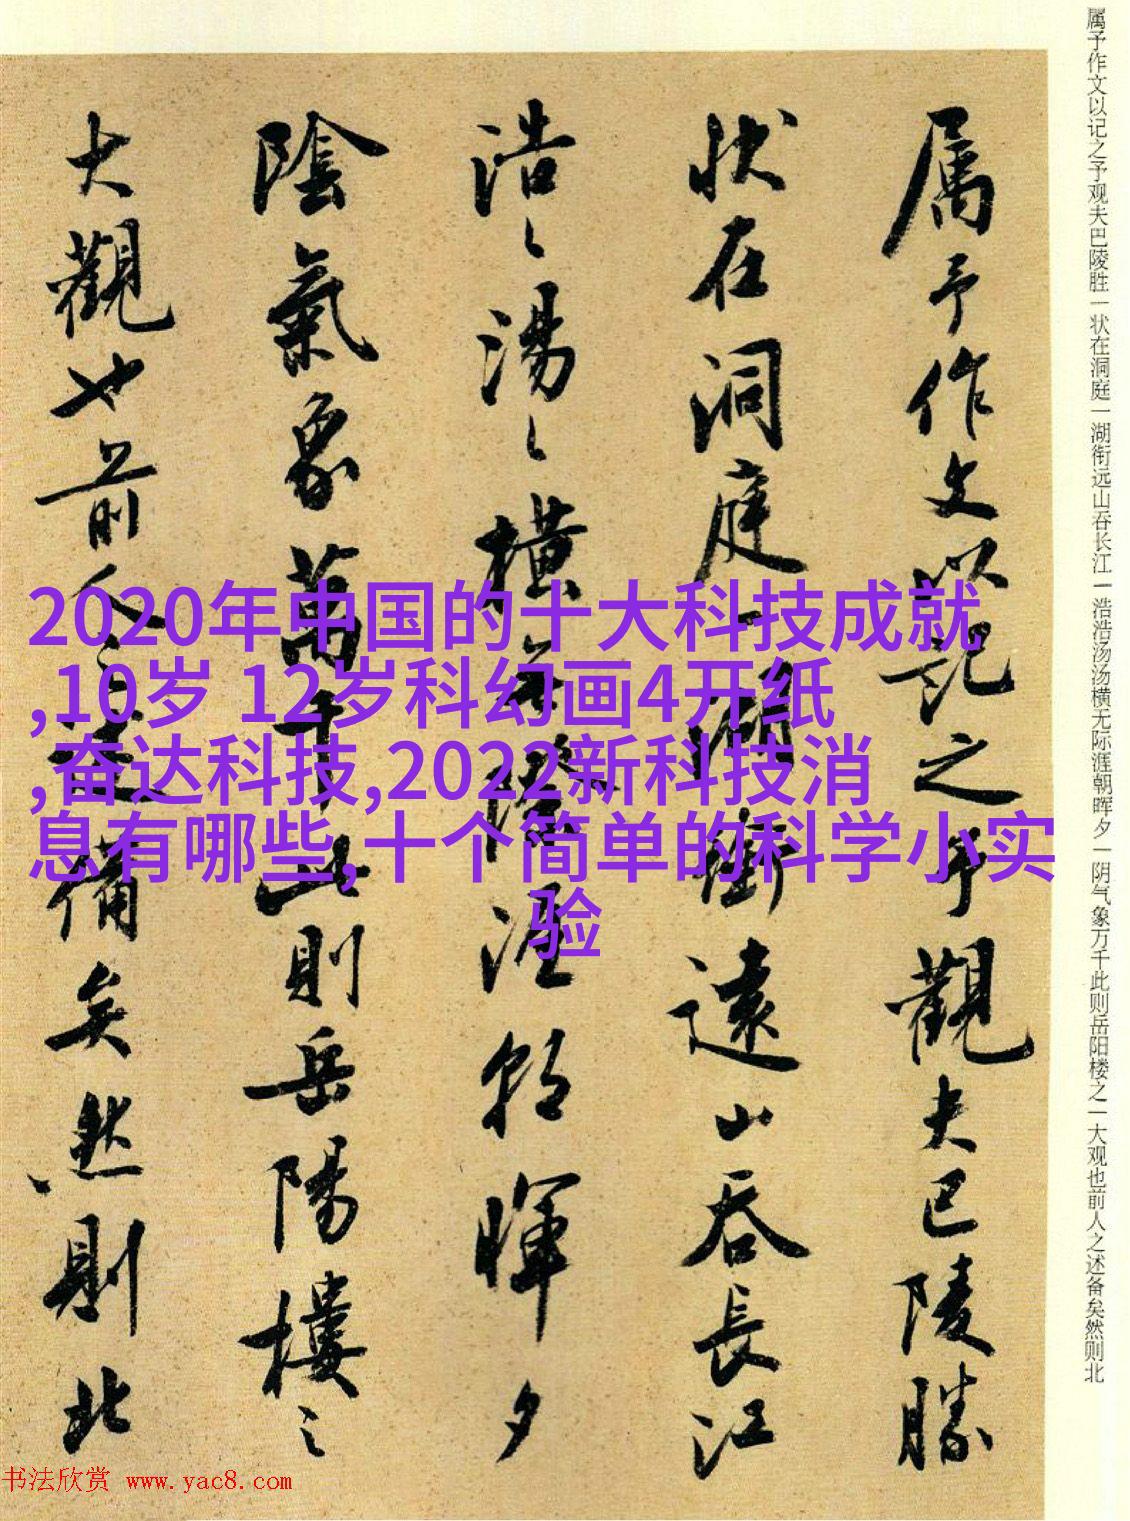 属予作文以记之予观夫巴陵胜一状在洞庭一湖衔远山吞长江一浩浩汤汤横无际涯朝晖夕一阴气象万千此则岳阳楼之一大观也前人之述备矣然则北
属予作文以記之予觀夫巴陵勝
狀在洞庭一湖銜遠山吞長江
浩〻湯〻橫無際涯朝暉夕
陰氣象萬千此則岳陽樓之
大觀也前人之述備矣然則北
2020年中国的十大科技成就
,10岁 12岁科幻画4开纸
,奋达科技,2022新科技消
息有哪些,十个简单的科学小实
验
书法欣赏 www.yac8.com